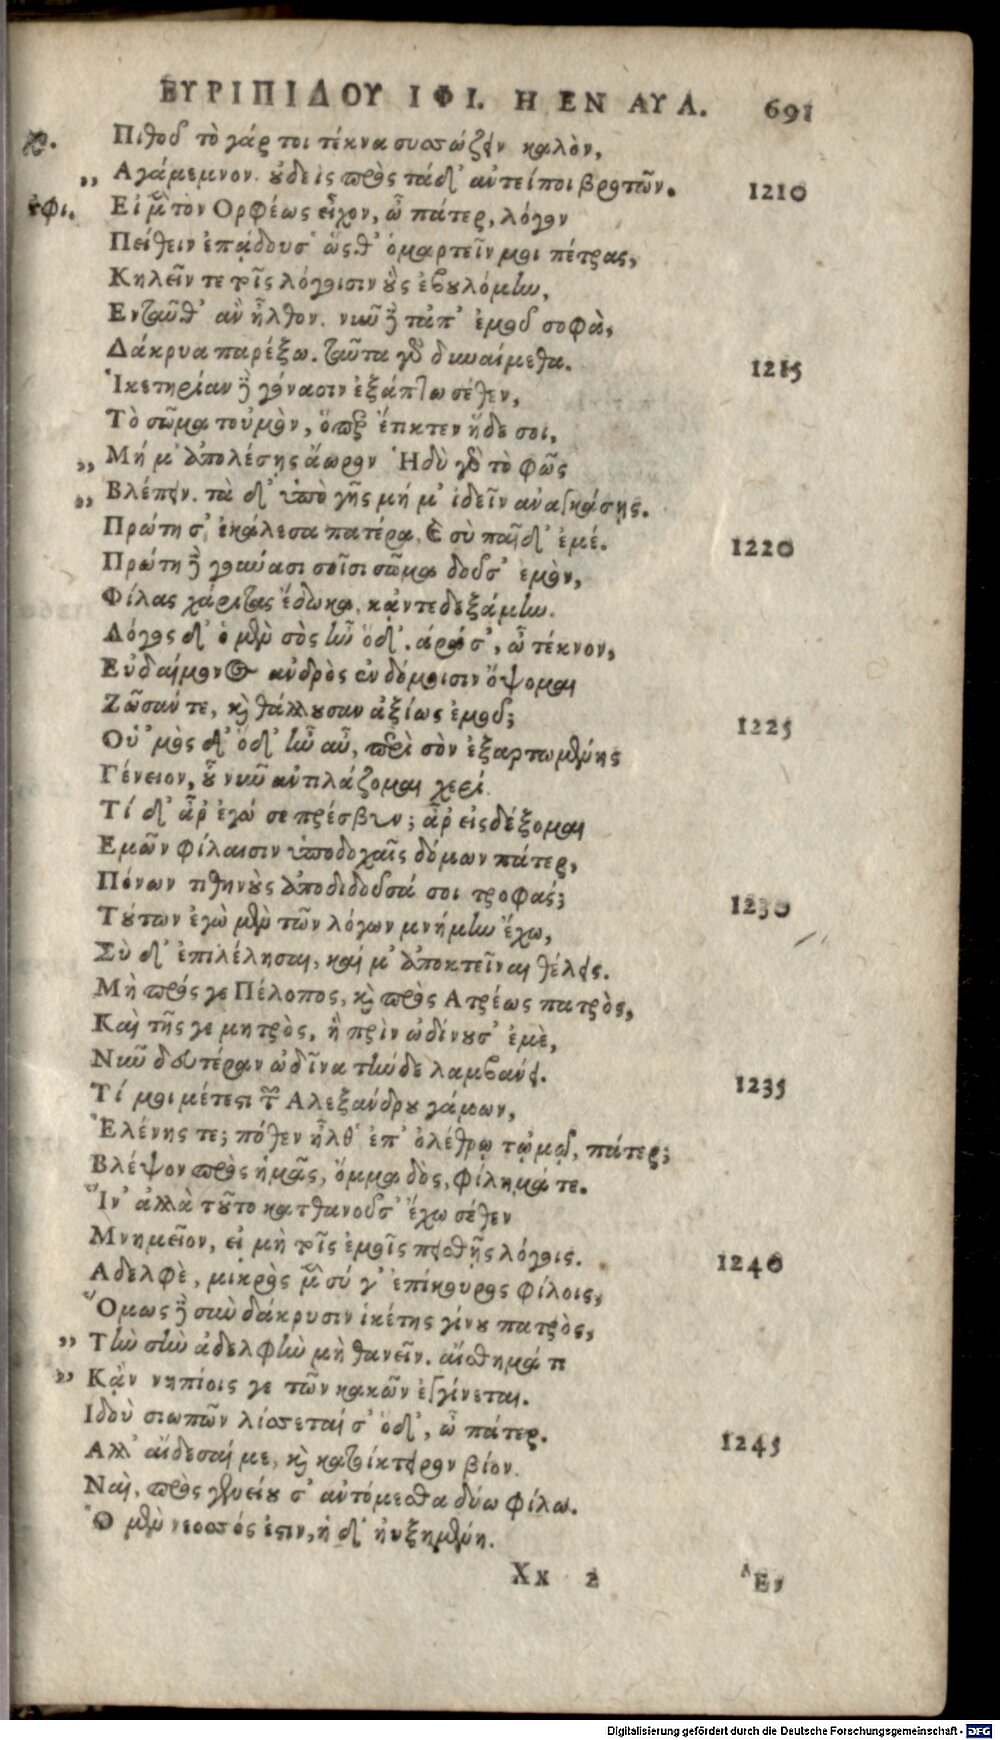 ΕΥΡΙΠΙΔΟΥ ΙΦΙ. Η ΕΝ ΑΥΛ. 691
χο. Πιθοῦ τὸ γάρ τοι τέκνα συσσώζειν καλὸν,
,, Αγάμεμνον. οὐδεὶς πρὸς τάδ' ἀντείποι βροτῶν. 1210
ἰφι. Εἰ μὲν τὸν Ορφέως εἶχον, ὦ πάτερ, λόγον
Πείθειν ἐπᾴδουσ' ὥσθ' ὁμαρτεῖν μοι πέτρας,
Κηλεῖν τε τοῖς λόγοισιν οὓς ἐβουλόμην,
Ενταῦθ' ἂν ἦλθον. νῦν δὲ τἀπ' ἐμοῦ σοφὰ,
Δάκρυα παρέξω. ταῦτα γὰρ δυναίμεθα. 1215
Ἱκετηρίαν δὲ γόνασιν ἐξάπτω σέθεν,
Τὸ σῶμα τοὐμὸν, ὅπερ ἔτικτεν ἥδε σοι,
,, Μή μ' ἀπολέσῃς ἄωρον Ἡδὺ γὰρ τὸ φῶς
,, Βλέπειν. τὰ δ' ὑπὸ γῆς μή μ' ἰδεῖν ἀναγκάσῃς.
Πρώτη σ' ἐκάλεσα πατέρα, καὶ σὺ παῖδ' ἐμέ. 1220
Πρώτη δὲ γόνασι σοῖσι σῶμα δοῦσ' ἐμὸν,
Φίλας χάριτας ἔδωκα, κἀντεδεξάμην.
Λόγος δ' ὁ μὲν σὸς ἦν ὅδ'. ἆρά σ', ὦ τέκνον,
Εὐδαίμονος ἀνδρὸς ἐν δόμοισιν ὄψομαι
Ζῶσάν τε, καὶ θάλλουσαν ἀξίως ἐμοῦ; 1225
Οὑ'μὸς δ' ὅδ' ἦν αὖ, περὶ σὸν ἐξαρτωμένης
Γένειον, οὗ νῦν ἀντιλάζομαι χερί.
Τί δ' ἆρ' ἐγώ σε πρέσβυν; ἆρ' εἰσδέξομαι
Εμῶν φίλαισιν ὑποδοχαῖς δόμων πάτερ,
Πόνων τιθηνοὺς ἀποδιδοῦσά σοι τροφάς; 1230
Τούτων ἐγὼ μὲν τῶν λόγων μνήμην ἔχω,
Σὺ δ' ἐπιλέλησαι, καί μ' ἀποκτεῖναι θέλεις.
Μὴ πρός γε Πέλοπος, καὶ πρὸς Ατρέως πατρὸς,
Καὶ τῆς γε μητρὸς, ἣ πρὶν ὠδίνουσ' ἐμὲ,
Νῦν δευτέραν ὠδῖνα τήνδε λαμβάνει. 1235
Τί μοι μέτεστι τῶν Αλεξάνδρου γάμων,
Ἑλένης τε; πόθεν ἦλθ' ἐπ' ὀλέθρῳ τῷμῷ, πάτερ;
Βλέψον πρὸς ἡμᾶς, ὄμμα δὸς, φίλημά τε.
Ἵν' ἀλλὰ τοῦτο κατθανοῦσ' ἔχω σέθεν
Μνημεῖον, εἰ μὴ τοῖς ἐμοῖς πεισθῇς λόγοις. 1240
Αδελφὲ, μικρὸς μὲν σύ γ' ἐπίκουρος φίλοις,
Ὅμως δὲ σὺν δάκρυσιν ἱκέτης γίνου πατρὸς,
,, Τὴν σὴν ἀδελφὴν μὴ θανεῖν. αἴσθημά τι
,, Κἀν νηπίοις γε τῶν κακῶν ἐγγίνεται.
Ιδοὺ σιωπῶν λίσσεταί σ' ὅδ', ὦ πάτερ. 1245
Αλλ' αἴδεσαί με, καὶ κατοίκτειρον βίον.
Ναὶ, πρὸς γενείου σ' ἀντόμεσθα δύω φίλω.
Ὁ μὲν νεοσσός ἐστιν, ἡ δ' ηὐξημένη.
Xx 2 Ἓν
Digitalisierung gefördert durch die Deutsche Forschungsgemeinschaft - DFG